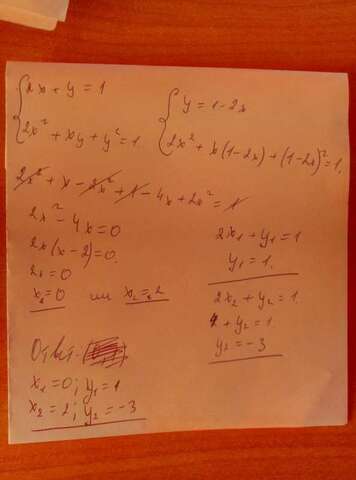 2x + y = 1
2x² + xy + y² = 1.
y = 1 - 2x
2x² + x(1-2x) + (1-2x)² = 1,
2x² + x - 2x² + 1 - 4x + 2x² = 1
2x² - 4x = 0
2x(x-2) = 0.
2x = 0
x₁ = 0 или x₂ = 2
2x₁ + y₁ = 1
y₁ = 1.
2x₂ + y₂ = 1.
4 + y₂ = 1
y₂ = -3
Ответ:
x₁ = 0; y₁ = 1
x₂ = 2; y₂ = -3